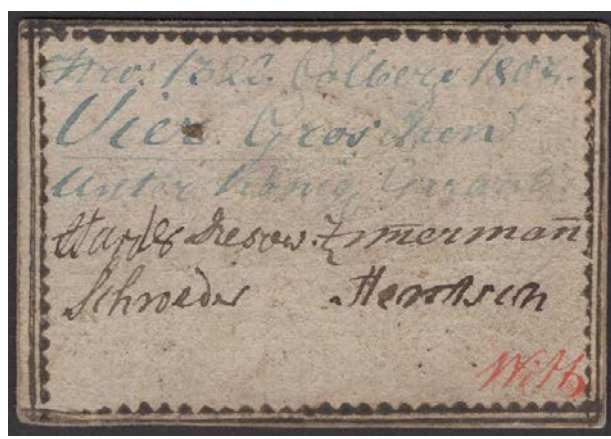 Nro: 1322. Colberg 1807.
Vier Groschen
unter Königl Garant:
Hardes Dresow. Zimermañ
Schroeder Hentsch
Witte